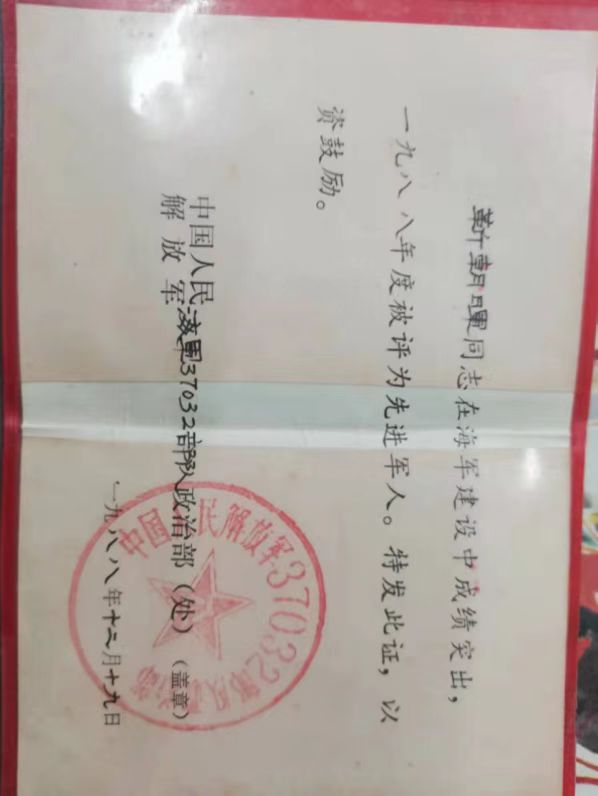 靳朝晖同志在海军建设中成绩突出，
一九八八年度被评为先进军人。特发此证，以
资鼓励。
中国人民
解放军海军37032部队政治部（处）（盖章）
一九八八年十二月十九日
中国人民解放军37032部队政治部